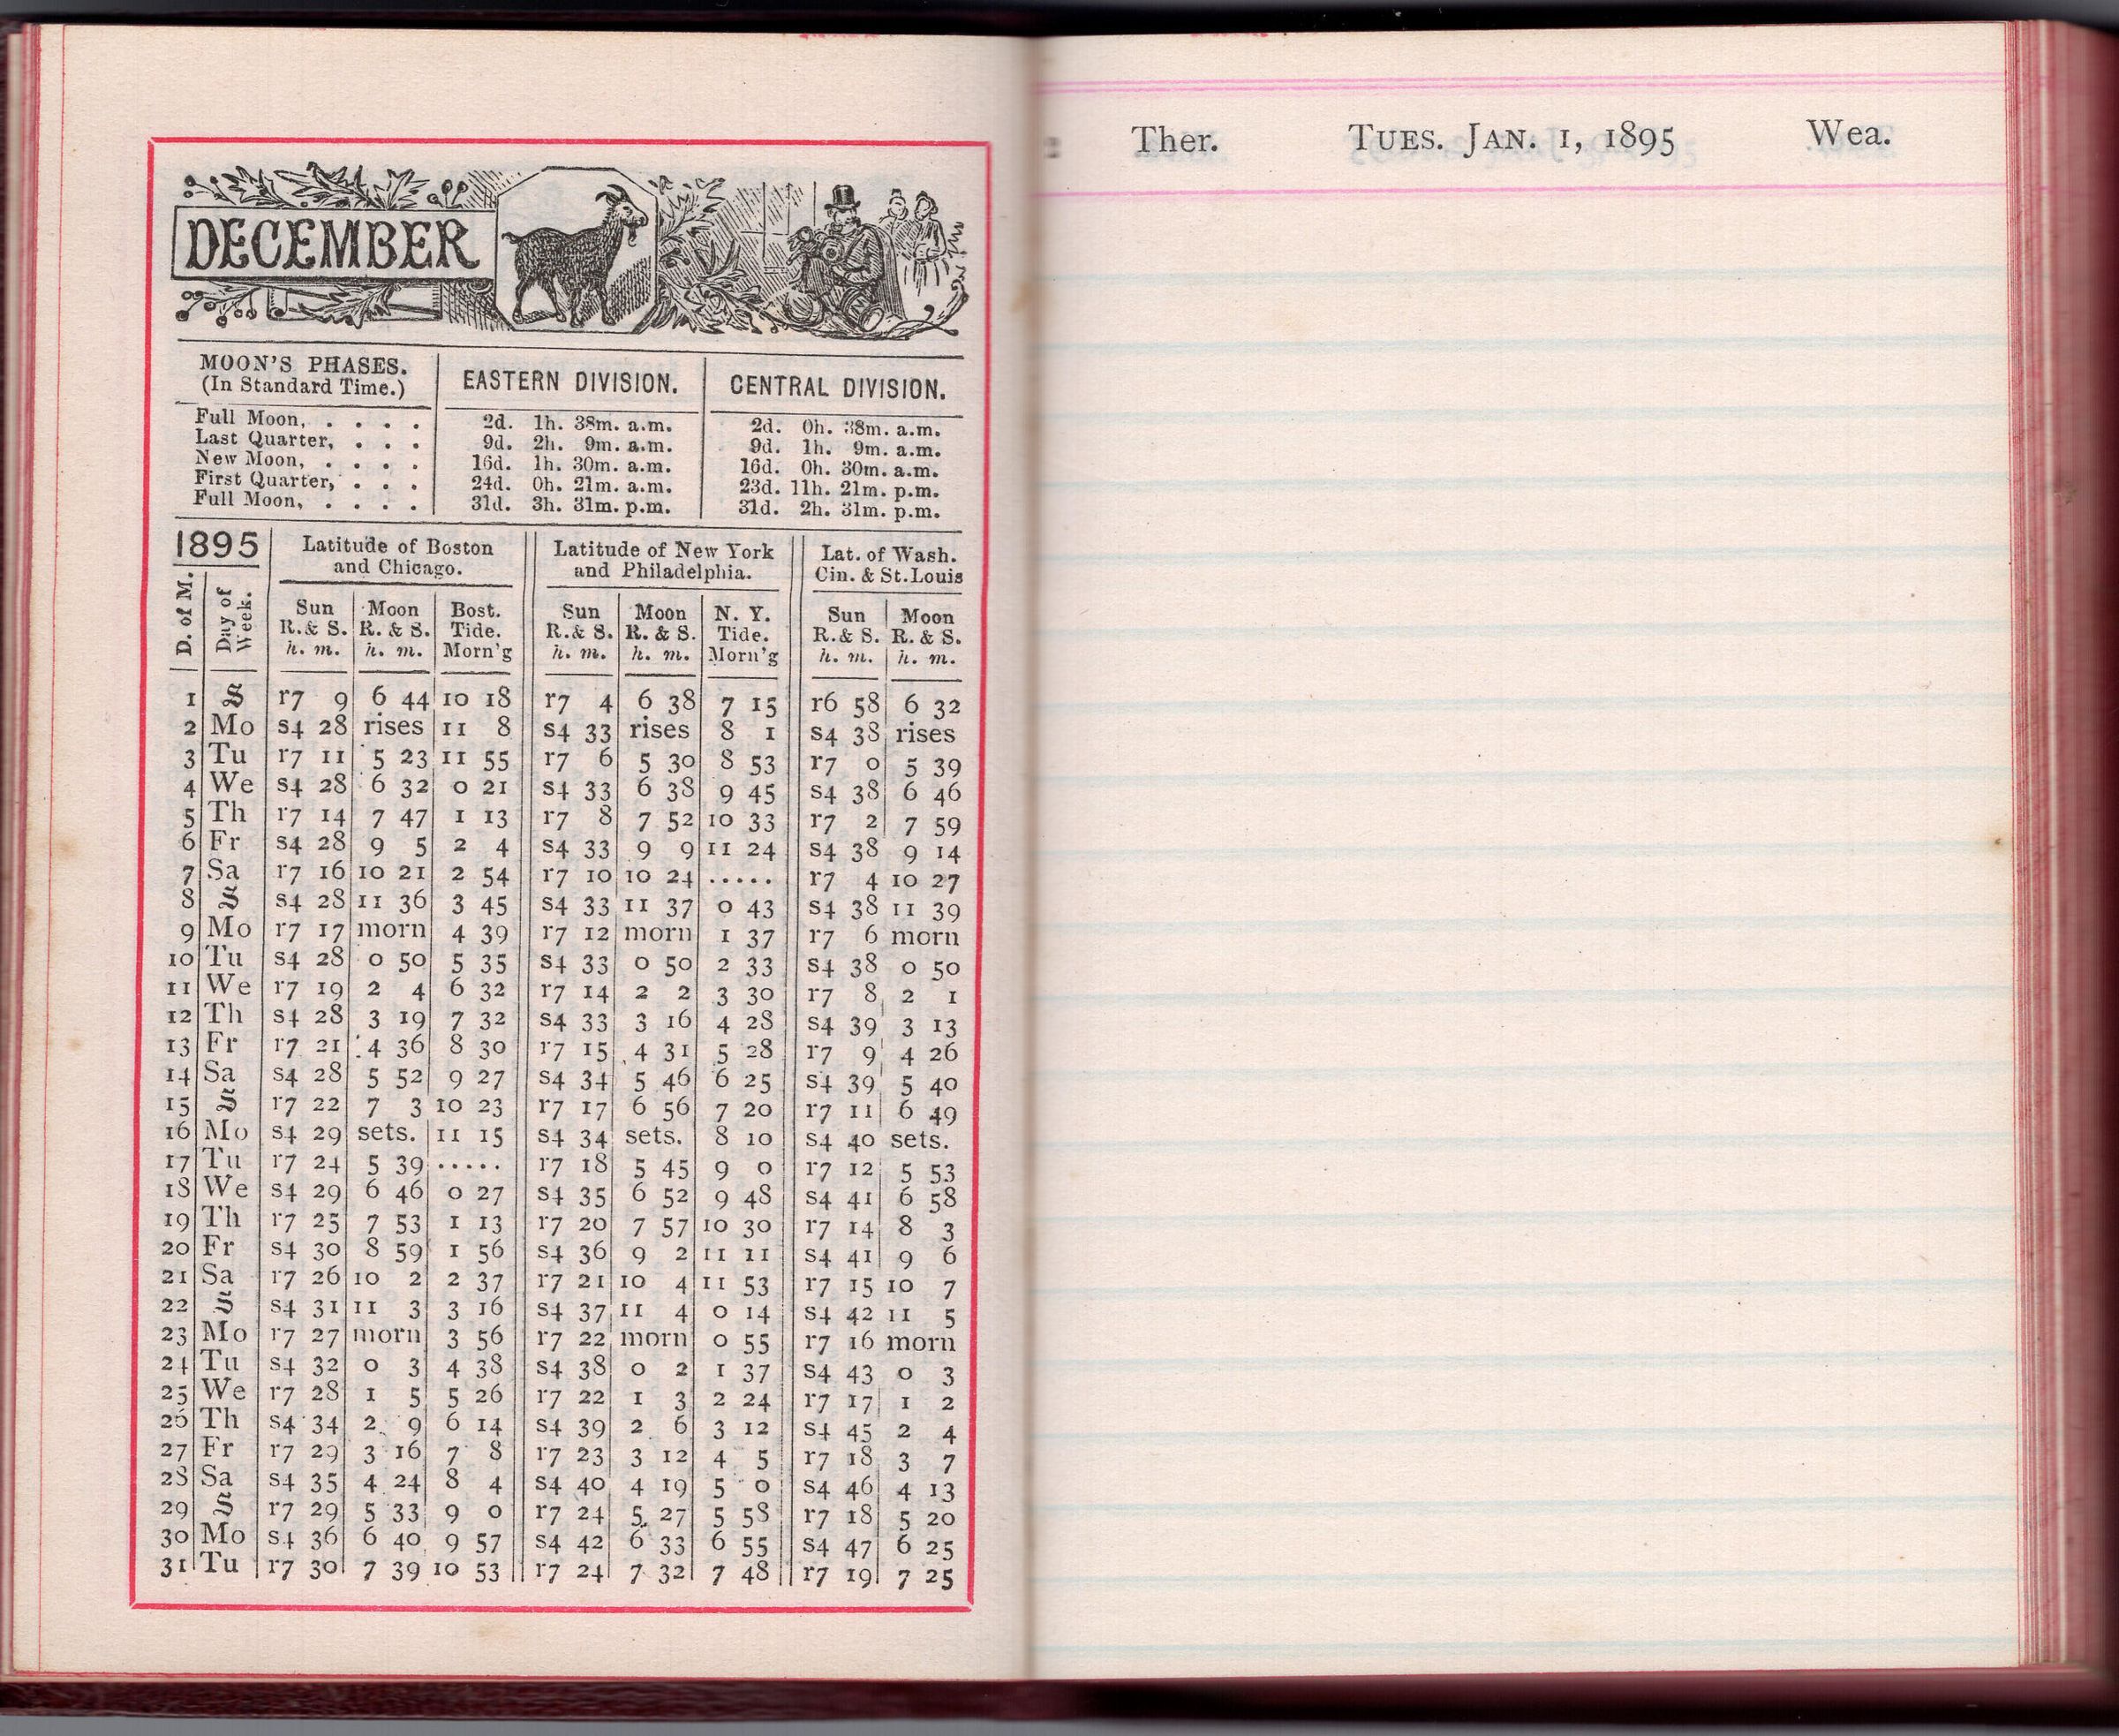 DECEMBER
MOON'S PHASES. (In Standard Time.) EASTERN DIVISION. CENTRAL DIVISION.
Full Moon, . . . . 2d. 1h. 38m. a.m. 2d. 0h. 38m. a.m.
Last Quarter, . . . 9d. 2h. 9m. a.m. 9d. 1h. 9m. a.m.
New Moon, . . . . 16d. 1h. 30m. a.m. 16d. 0h. 30m. a.m.
First Quarter, . . . 24d. 0h. 21m. a.m. 23d. 11h. 21m. p.m.
Full Moon, . . . . 31d. 3h. 31m. p.m. 31d. 2h. 31m. p.m.
1895 Latitude of Boston Latitude of New York Lat. of Wash.
and Chicago. and Philadelphia. Cin. & St. Louis
D. of M. Day of Week. Sun Moon Bost. Sun Moon N. Y. Sun Moon
R. & S. R. & S. Tide. R. & S. R. & S. Tide. R. & S. R. & S.
h. m. h. m. Morn'g h. m. h. m. Morn'g h. m. h. m.
1 S r7 9 6 44 10 18 r7 4 6 38 7 15 r6 58 6 32
2 Mo s4 28 rises 11 8 s4 33 rises 8 1 s4 38 rises
3 Tu r7 11 5 23 11 55 r7 6 5 30 8 53 r7 0 5 39
4 We s4 28 6 32 0 21 s4 33 6 38 9 45 s4 38 6 46
5 Th r7 14 7 47 1 13 r7 8 7 52 10 33 r7 2 7 59
6 Fr s4 28 9 5 2 4 s4 33 9 9 11 24 s4 38 9 14
7 Sa r7 16 10 21 2 54 r7 10 10 24 ..... r7 4 10 27
8 S s4 28 11 36 3 45 s4 33 11 37 0 43 s4 38 11 39
9 Mo r7 17 morn 4 39 r7 12 morn 1 37 r7 6 morn
10 Tu s4 28 0 50 5 35 s4 33 0 50 2 33 s4 38 0 50
11 We r7 19 2 4 6 32 r7 14 2 2 3 30 r7 8 2 1
12 Th s4 28 3 19 7 32 s4 33 3 16 4 28 s4 39 3 13
13 Fr r7 21 4 36 8 30 r7 15 4 31 5 28 r7 9 4 26
14 Sa s4 28 5 52 9 27 s4 34 5 46 6 25 s4 39 5 40
15 S r7 22 7 3 10 23 r7 17 6 56 7 20 r7 11 6 49
16 Mo s4 29 sets. 11 15 s4 34 sets. 8 10 s4 40 sets.
17 Tu r7 24 5 39 ..... r7 18 5 45 9 0 r7 12 5 53
18 We s4 29 6 46 0 27 s4 35 6 52 9 48 s4 41 6 58
19 Th r7 25 7 53 1 13 r7 20 7 57 10 30 r7 14 8 3
20 Fr s4 30 8 59 1 56 s4 36 9 2 11 11 s4 41 9 6
21 Sa r7 26 10 2 2 37 r7 21 10 4 11 53 r7 15 10 7
22 S s4 31 11 3 3 16 s4 37 11 4 0 14 s4 42 11 5
23 Mo r7 27 morn 3 56 r7 22 morn 0 55 r7 16 morn
24 Tu s4 32 0 3 4 38 s4 38 0 2 1 37 s4 43 0 3
25 We r7 28 1 5 5 26 r7 22 1 3 2 24 r7 17 1 2
26 Th s4 34 2 9 6 14 s4 39 2 6 3 12 s4 45 2 4
27 Fr r7 29 3 16 7 8 r7 23 3 12 4 5 r7 18 3 7
28 Sa s4 35 4 24 8 4 s4 40 4 19 5 0 s4 46 4 13
29 S r7 29 5 33 9 0 r7 24 5 27 5 58 r7 18 5 20
30 Mo s4 36 6 40 9 57 s4 42 6 33 6 55 s4 47 6 25
31 Tu r7 30 7 39 10 53 r7 24 7 32 7 48 r7 19 7 25
Ther. TUES. JAN. 1, 1895 Wea.